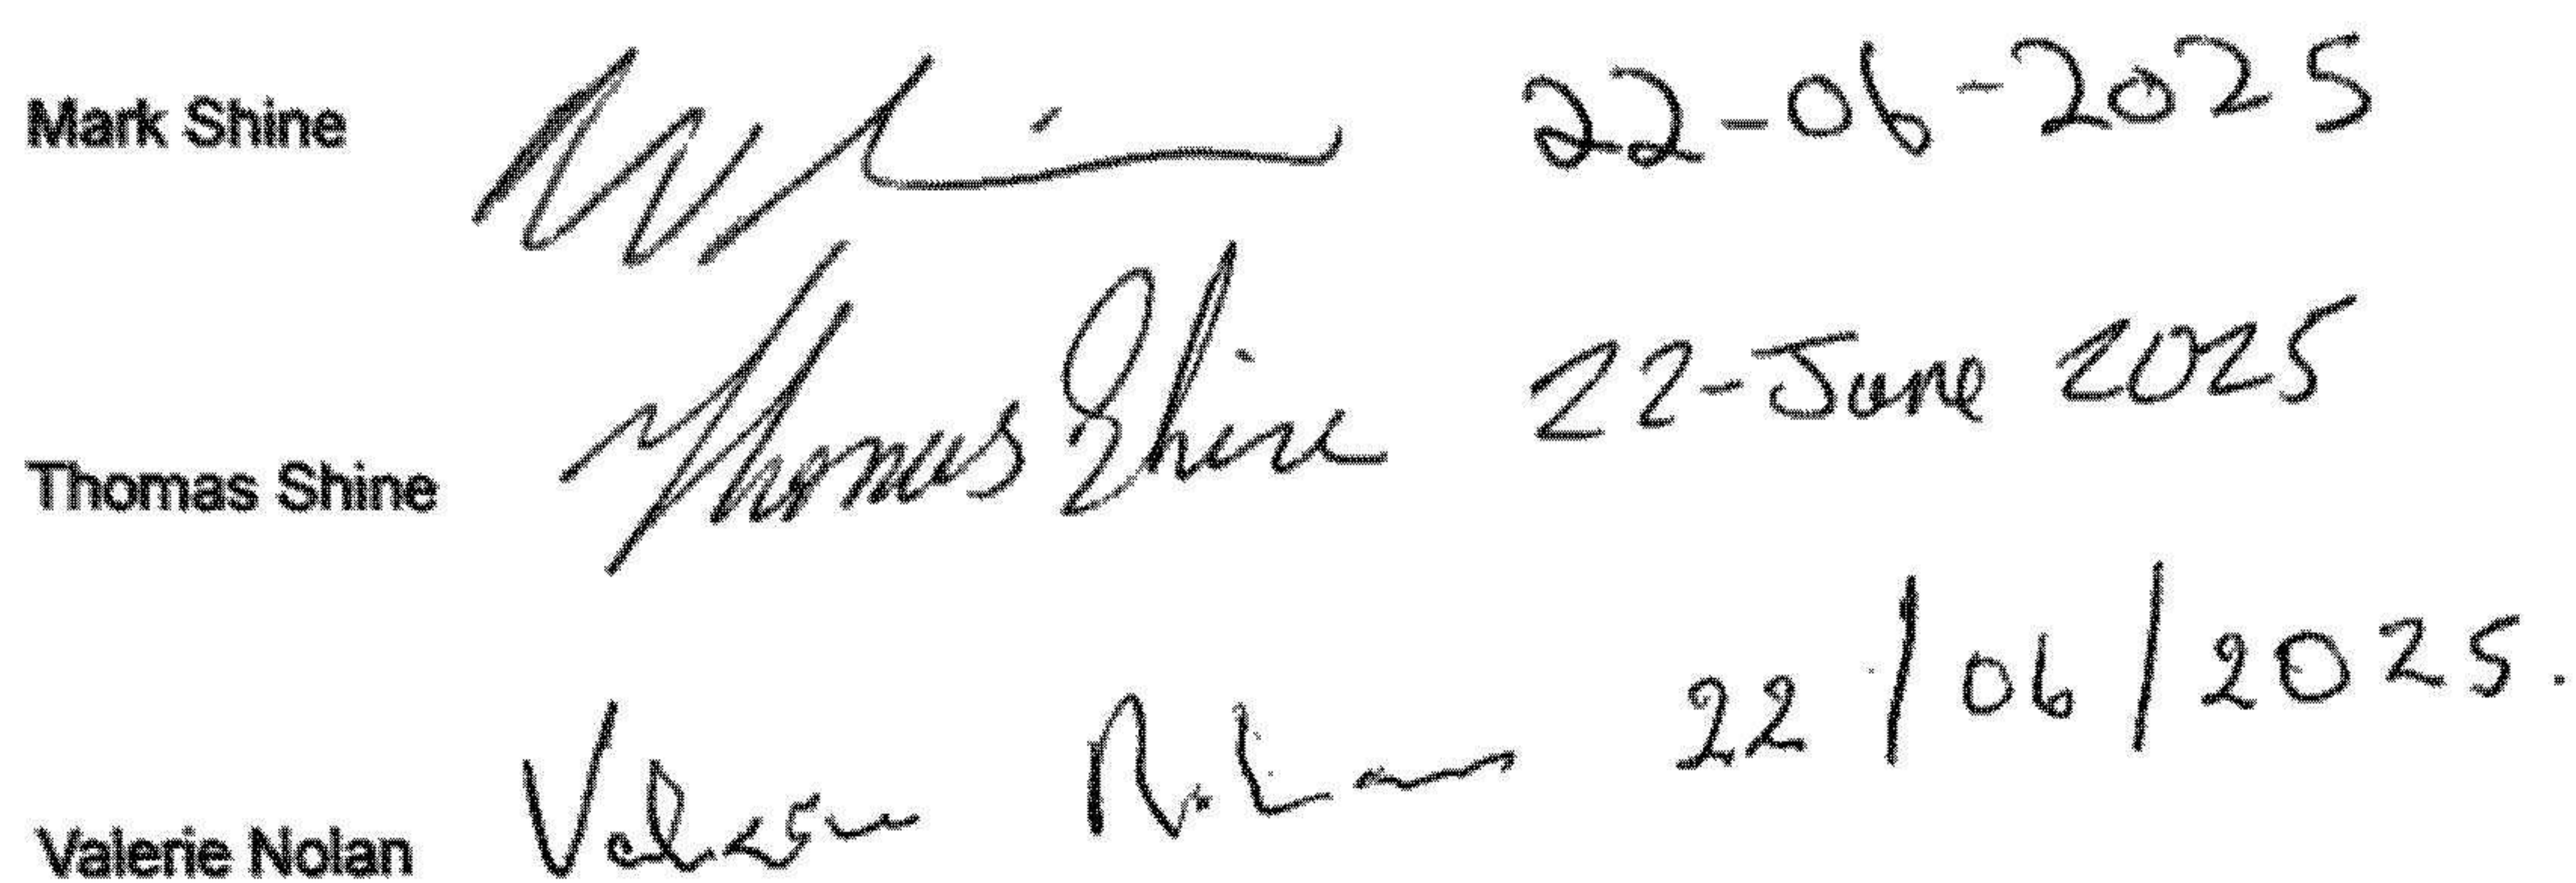 Mark Shine 22-06-2025
Thomas Shine Thomas Shine 22-June 2025
Valerie Nolan Valerie Nolan 22/06/2025.